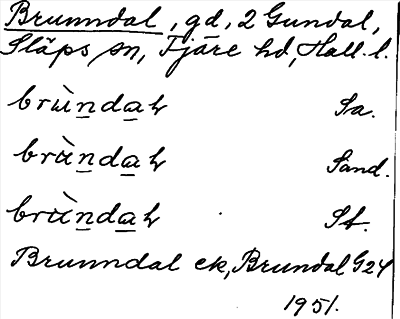 Brunndal, gd, 2 Gundal,
Släps sn, Fjäre hd, Hall. l.
brùndaɫ Sa.
brùndaɫ Sand.
brùndaɫ St.
Brunndal ek, Brundal G24
1951.